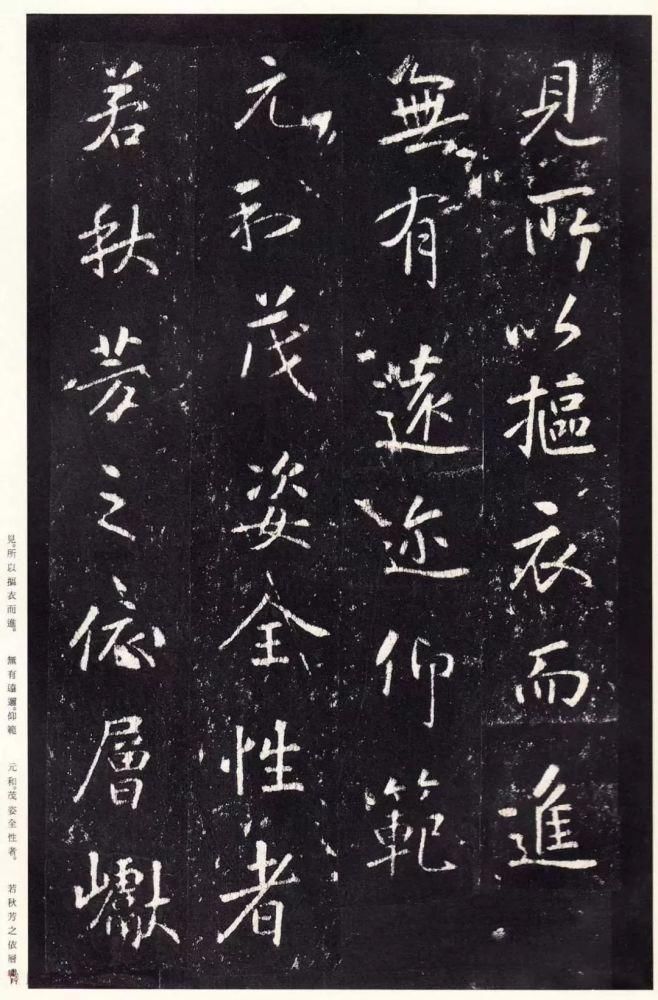 見所以摳衣而進
無有遠迩仰範
元和茂姿全性者
若秋芳之依層巘
見。所以摳衣而進。 無有遠邇。仰範 元和。茂姿全性者。 若秋芳之依層巘